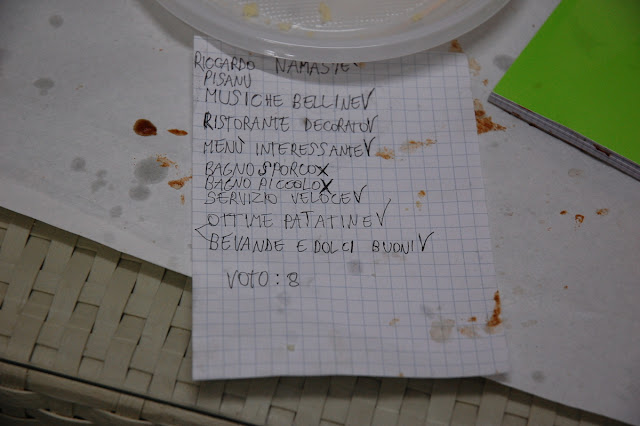 RICCARDO NAMASTE
PISANU
MUSICHE BELLINE √
RISTORANTE DECORATO √
MENÙ INTERESSANTE √
BAGNO SPORCO X
BAGNO PICCOLO X
SERVIZIO VELOCE √
OTTIME PATATINE √
BEVANDE E DOLCI BUONI √
VOTO: 8